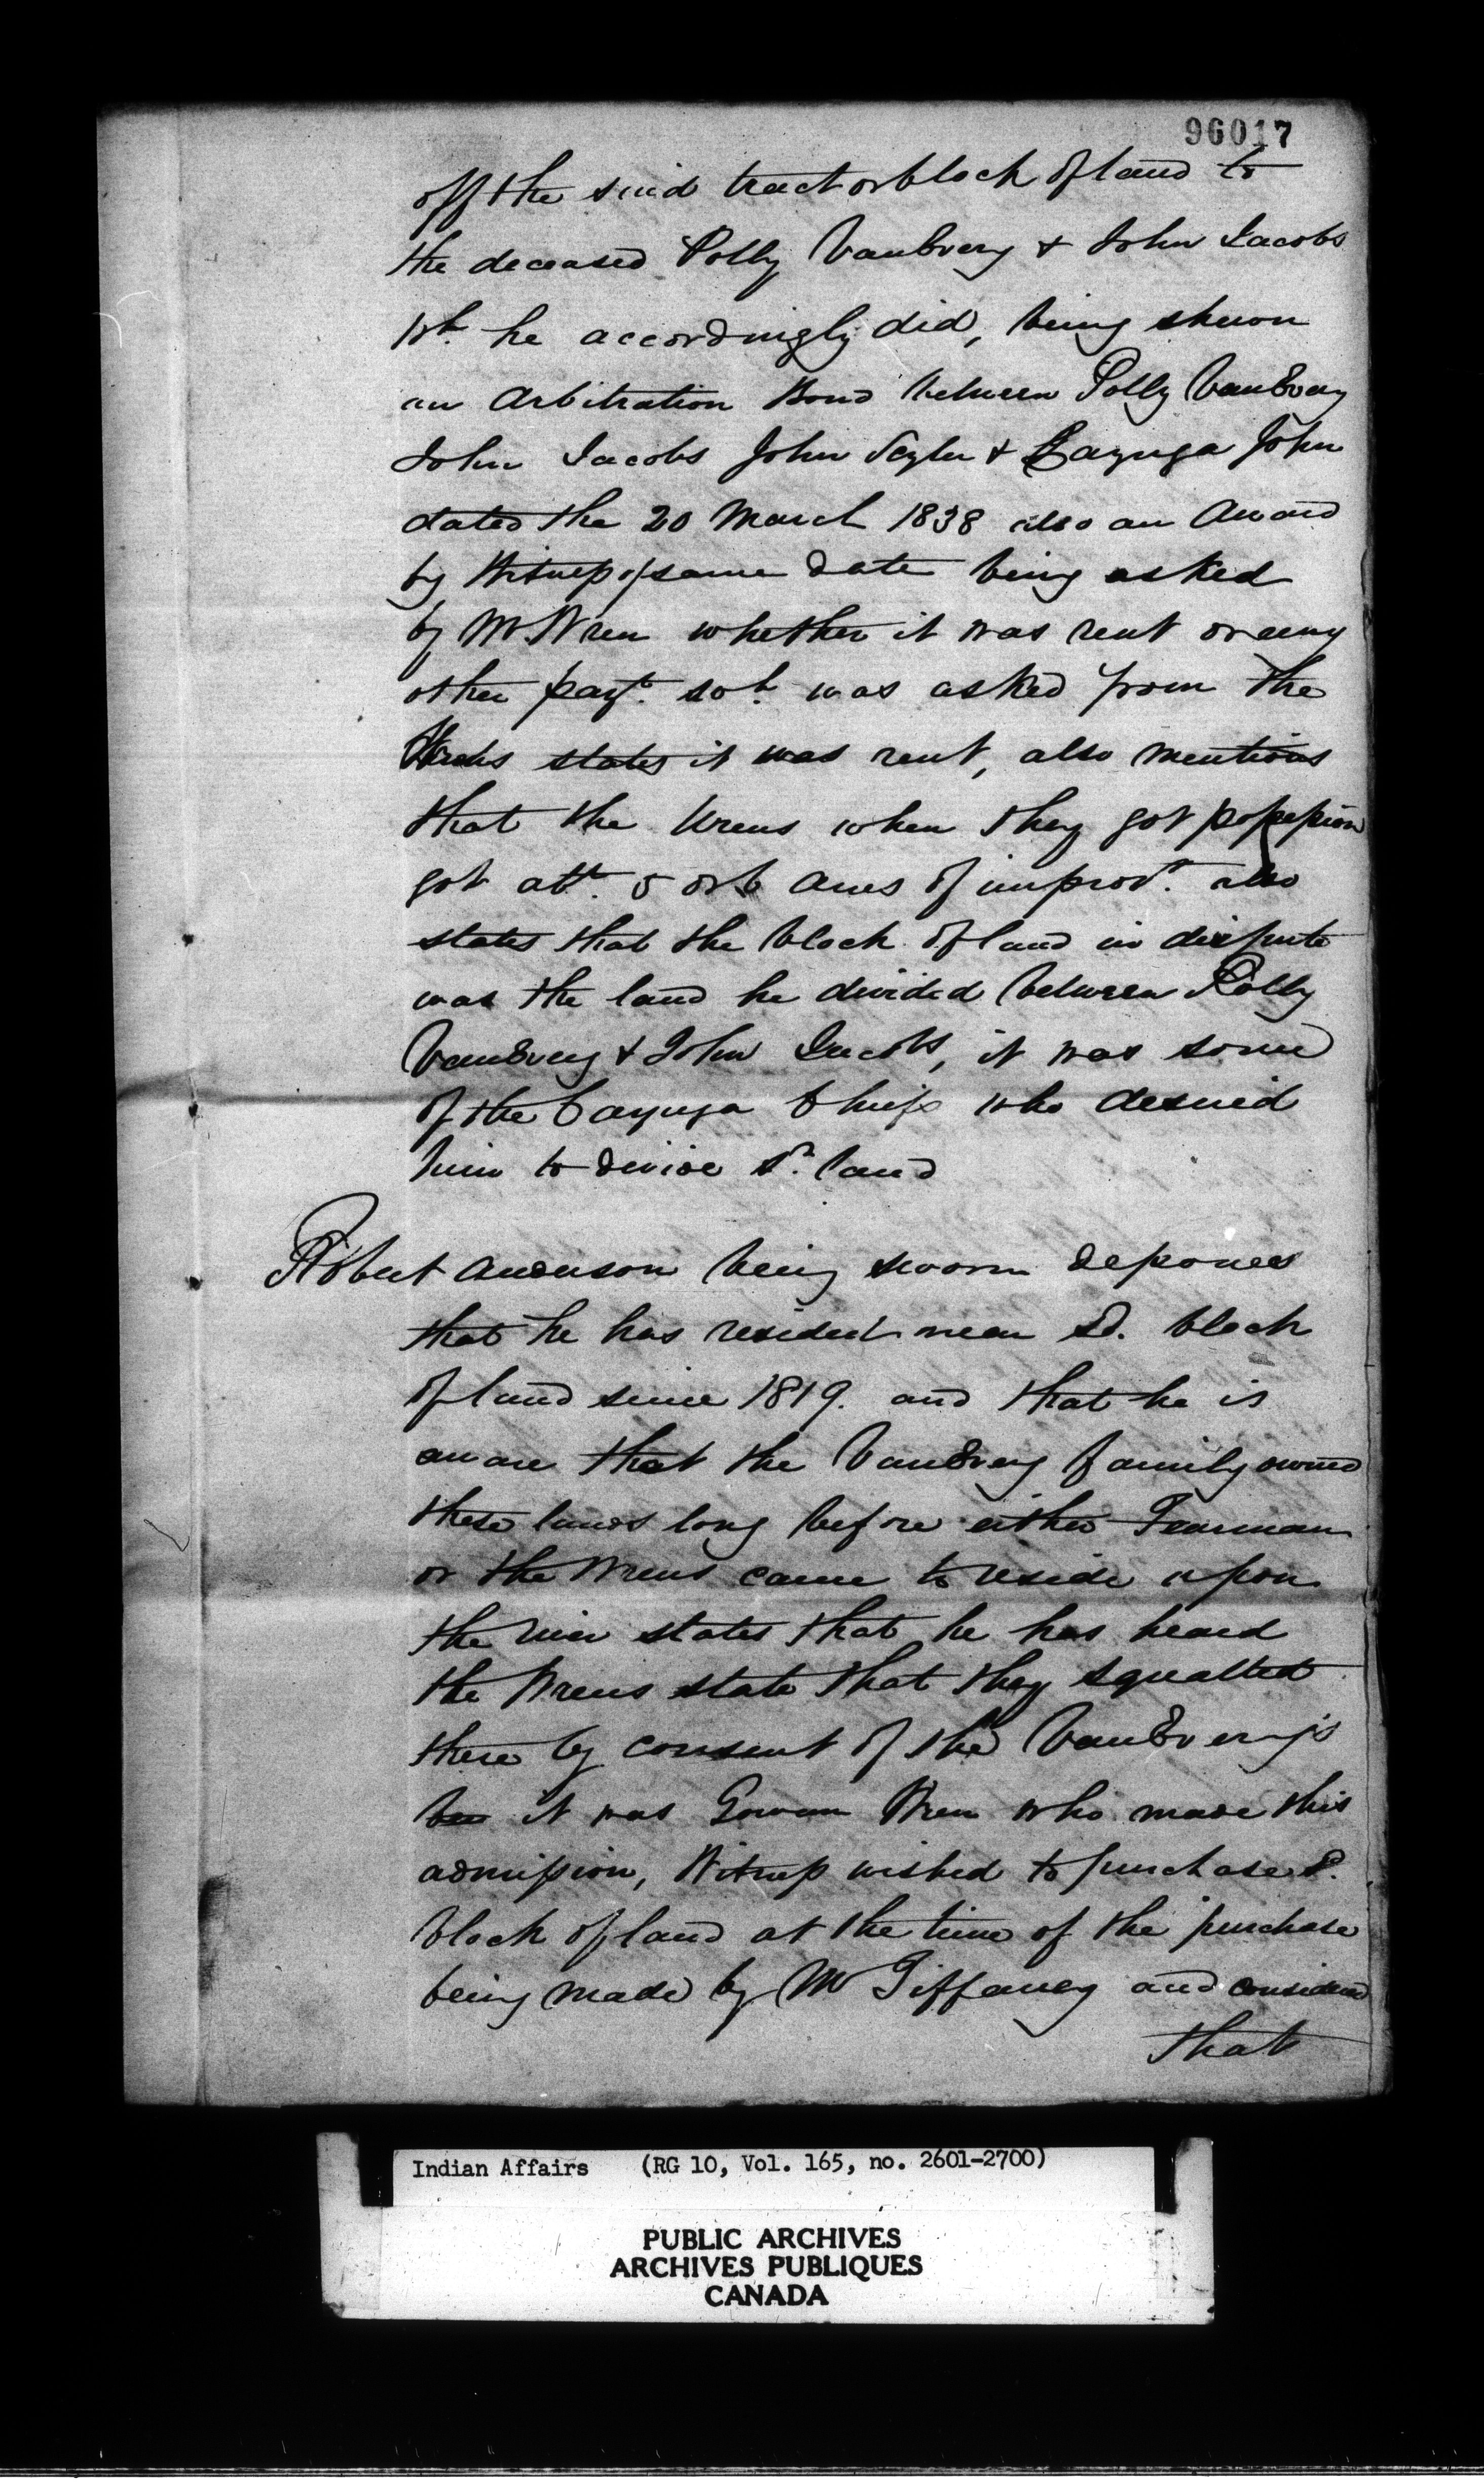 96017
off the said tract or block of land to
the deceased Polly VanEvery & John Jacobs
wh. he accordingly did, being shewn
an Arbitration Bond between Polly VanEvery
John Jacobs John & Cayuga John
dated the 20 March 1838 also an Award
by Witness of same date being asked
by Mr Wren whether it was rent or any
other payt. wh. was asked from the
Wrens states it was rent, also mentions
that the Wrens when they got possession
got abt. 5 or 6 acres of improvt. also
states that the block of land in dispute
was the land he divided between Polly
VanEvery & John Jacobs, it was some
of the Cayuga Chiefs who desired
him to divide sd. land
Robert Anderson being sworn depones
that he has resided near sd. block
of land since 1819. and that he is
aware that the VanEvery family owned
these lands long before either
or the Wrens came to reside upon
the river states that he has heard
the Wrens state that they squatted
there by consent of the VanEvery's
it was Gowan Wren who made this
admission, Witness wished to purchase sd.
block of land at the time of the purchase
being made by Mr Tiffaney and considered
that
Indian Affairs (RG 10, Vol. 165, no. 2601-2700)
PUBLIC ARCHIVES
ARCHIVES PUBLIQUES
CANADA